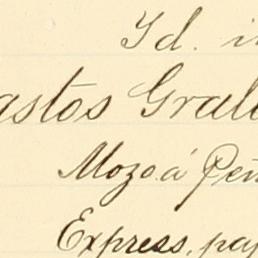 Id. i
astos Grale
Mozo á Peñ
Express, pa